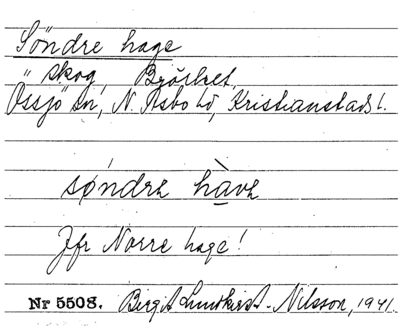 Söndre hage
" skog, Bjöshet,
Össjö sn, N. Åsbo hd, Kristianstads l.
søndrə hàvə
Jfr Norre hage!
Nr 5508. Birgit Lundkvist-Nilsson, 1941.